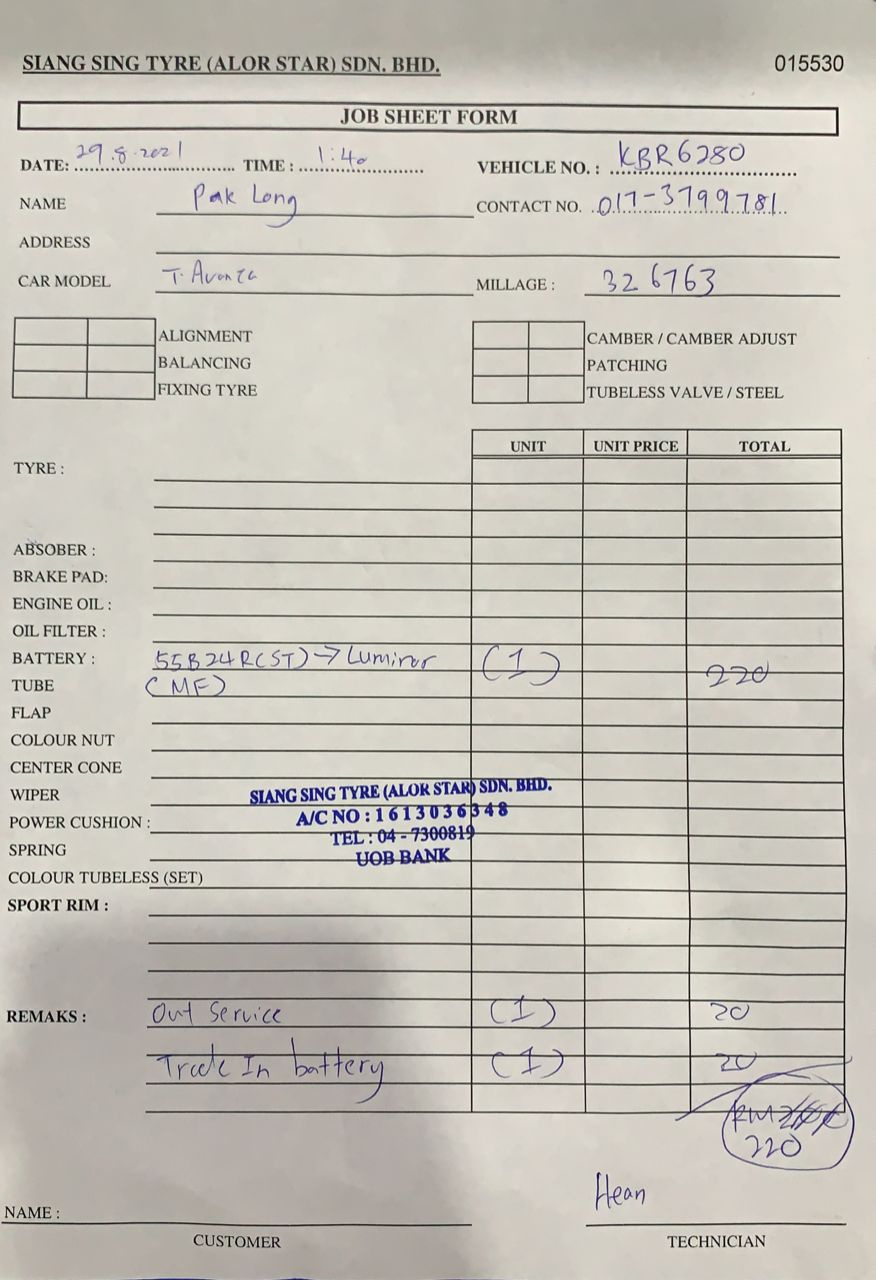 SIANG SING TYRE (ALOR STAR) SDN. BHD. 015530
JOB SHEET FORM
DATE: 29.8.2021 TIME : 1:40 VEHICLE NO. : KBR6280
NAME Pak Long CONTACT NO. 017-3799781
ADDRESS
CAR MODEL T. Avanza MILLAGE : 326763
ALIGNMENT CAMBER / CAMBER ADJUST
BALANCING PATCHING
FIXING TYRE TUBELESS VALVE / STEEL
UNIT UNIT PRICE TOTAL
TYRE :
ABSOBER :
BRAKE PAD:
ENGINE OIL :
OIL FILTER :
BATTERY : 55B24R(ST) → Luminor (1) 220
TUBE (MF)
FLAP
COLOUR NUT
CENTER CONE
WIPER
SIANG SING TYRE (ALOR STAR) SDN. BHD.
A/C NO : 1613036348
POWER CUSHION :
TEL : 04 - 7300819
SPRING
UOB BANK
COLOUR TUBELESS (SET)
SPORT RIM :
REMAKS : Out Service (1) 20
Trade In battery (1) 20
RM
220
Hean
NAME :
CUSTOMER TECHNICIAN